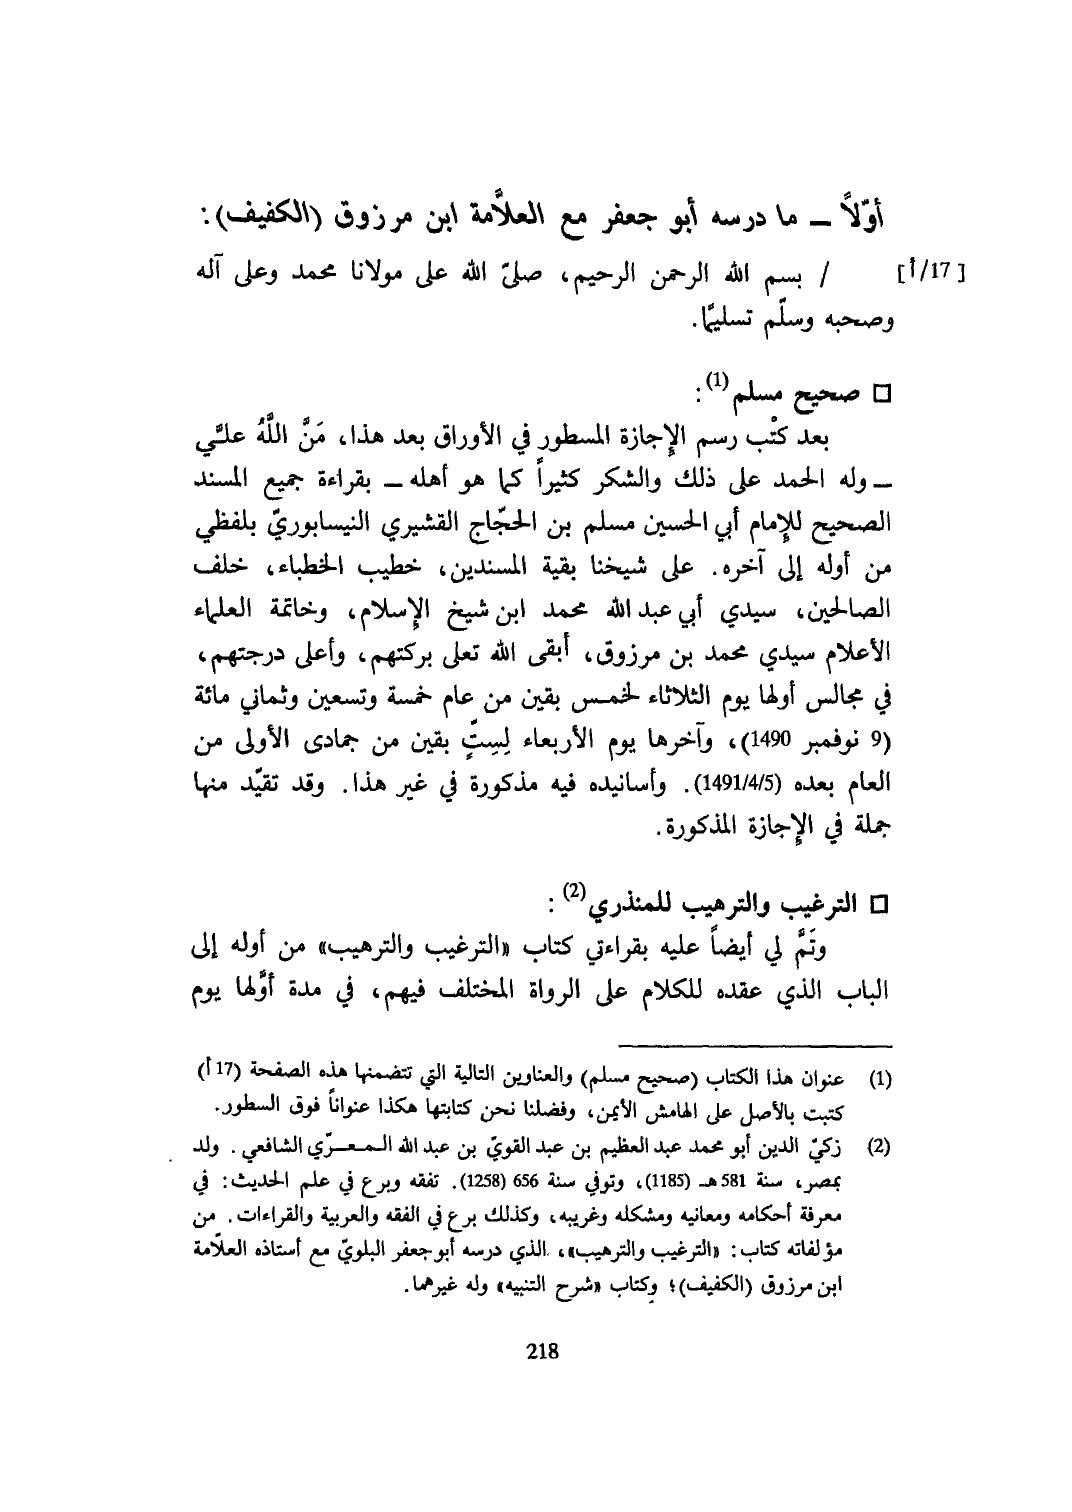 أوّلاً ــ ما درسه أبو جعفر مع العلاَّمة ابن مرزوق (الكفيف):
[17/أ] / بسم الله الرحمن الرحيم، صلىّ الله على مولانا محمد وعلى آله
وصحبه وسلّم تسليمًا.
□ صحيح مسلم(1):
بعد كتْب رسم الإجازة المسطور في الأوراق بعد هذا، مَنَّ اللَّهُ علـَّي
ــ وله الحمد على ذلك والشكر كثيراً كما هو أهله ــ بقراءة جميع المسند
الصحيح للإمام أبي الحسين مسلم بن الحجّاج القشيري النيسابوريّ بلفظي
من أوله إلى آخره. على شيخنا بقية المسندين، خطيب الخطباء، خلف
الصالحين، سيدي أبي عبد الله محمد ابن شيخ الإسلام، وخاتمة العلماء
الأعلام سيدي محمد بن مرزوق، أبقى الله تعلى بركتهم، وأعلى درجتهم،
في مجالس أولها يوم الثلاثاء لخمـس بقين من عام خمسة وتسعين وثماني مائة
(9 نوفمبر 1490)، وآخرها يوم الأربعاء لِسِتٍّ بقين من جمادى الأولى من
العام بعده (1491/4/5). وأسانيده فيه مذكورة في غير هذا. وقد تقيّد منها
جملة في الإجازة المذكورة.
□ الترغيب والترهيب للمنذري(2):
وتَمَّ لي أيضاً عليه بقراءتي كتاب «الترغيب والترهيب» من أوله إلى
الباب الذي عقده للكلام على الرواة المختلف فيهم، في مدة أوَّلها يوم
(1) عنوان هذا الكتاب (صحيح مسلم) والعناوين التالية التي تتضمنها هذه الصفحة (17أ)
كتبت بالأصل على الهامش الأيمن، وفضلنا نحن كتابتها هكذا عنواناً فوق السطور.
(2) زكيّ الدين أبو محمد عبد العظيم بن عبد القويّ بن عبد الله الـمـعـرّي الشافعي. ولد
بمصر، سنة 581 هـ (1185)، وتوفي سنة 656 (1258). تفقه وبرع في علم الحديث: في
معرفة أحكامه ومعانيه ومشكله وغريبه، وكذلك برع في الفقه والعربية والقراءات. من
مؤلفاته كتاب: «الترغيب والترهيب»، الذي درسه أبو جعفر البلويّ مع أستاذه العلاّمة
ابن مرزوق (الكفيف)؛ وكتاب «شرح التنبيه» وله غيرهما.
218